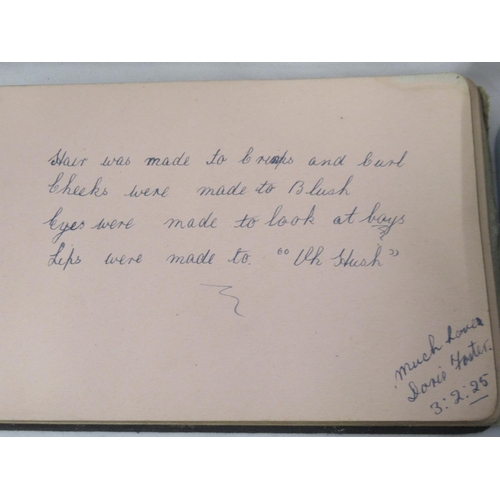 Hair was made to Crisps and Curl
Cheeks were made to Blush
Eyes were made to look at boys
Lips were made to. "Oh Hush"
Much Love
Doris Foster.
3:2:25